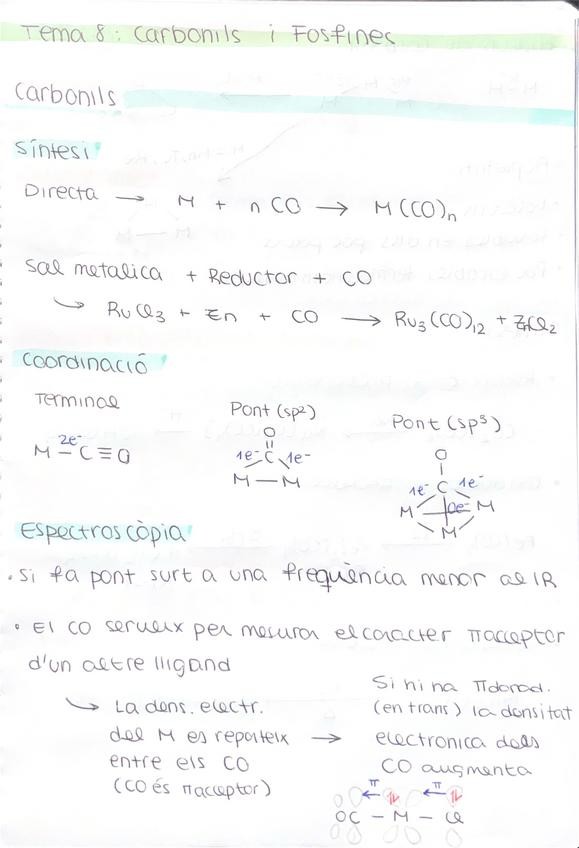 Tema 8: Carbonils i Fosfines
Carbonils
Síntesi
Directa → M + n CO → M(CO)n
Sal metalica + Reductor + CO
↪ RuCl3 + Zn + CO → Ru3(CO)12 + ZnCl2
Coordinació
Terminal
Pont (sp²)
Pont (sp³)
O
2e⁻
M — C ≡ O
1e⁻ C 1e⁻
M — M
O
1e⁻ C 1e⁻
M M
M
Espectroscòpia
• Si fa pont surt a una freqüència menor al IR
• El CO serveix per mesurar el caracter πacceptor
d'un altre lligand
↪ La dens. electr.
del M es reparteix →
entre els CO
(CO és πacceptor)
Si hi ha πdonad.
(en trans) la densitat
electronica dels
CO augmenta
π π
OC — M — Cl